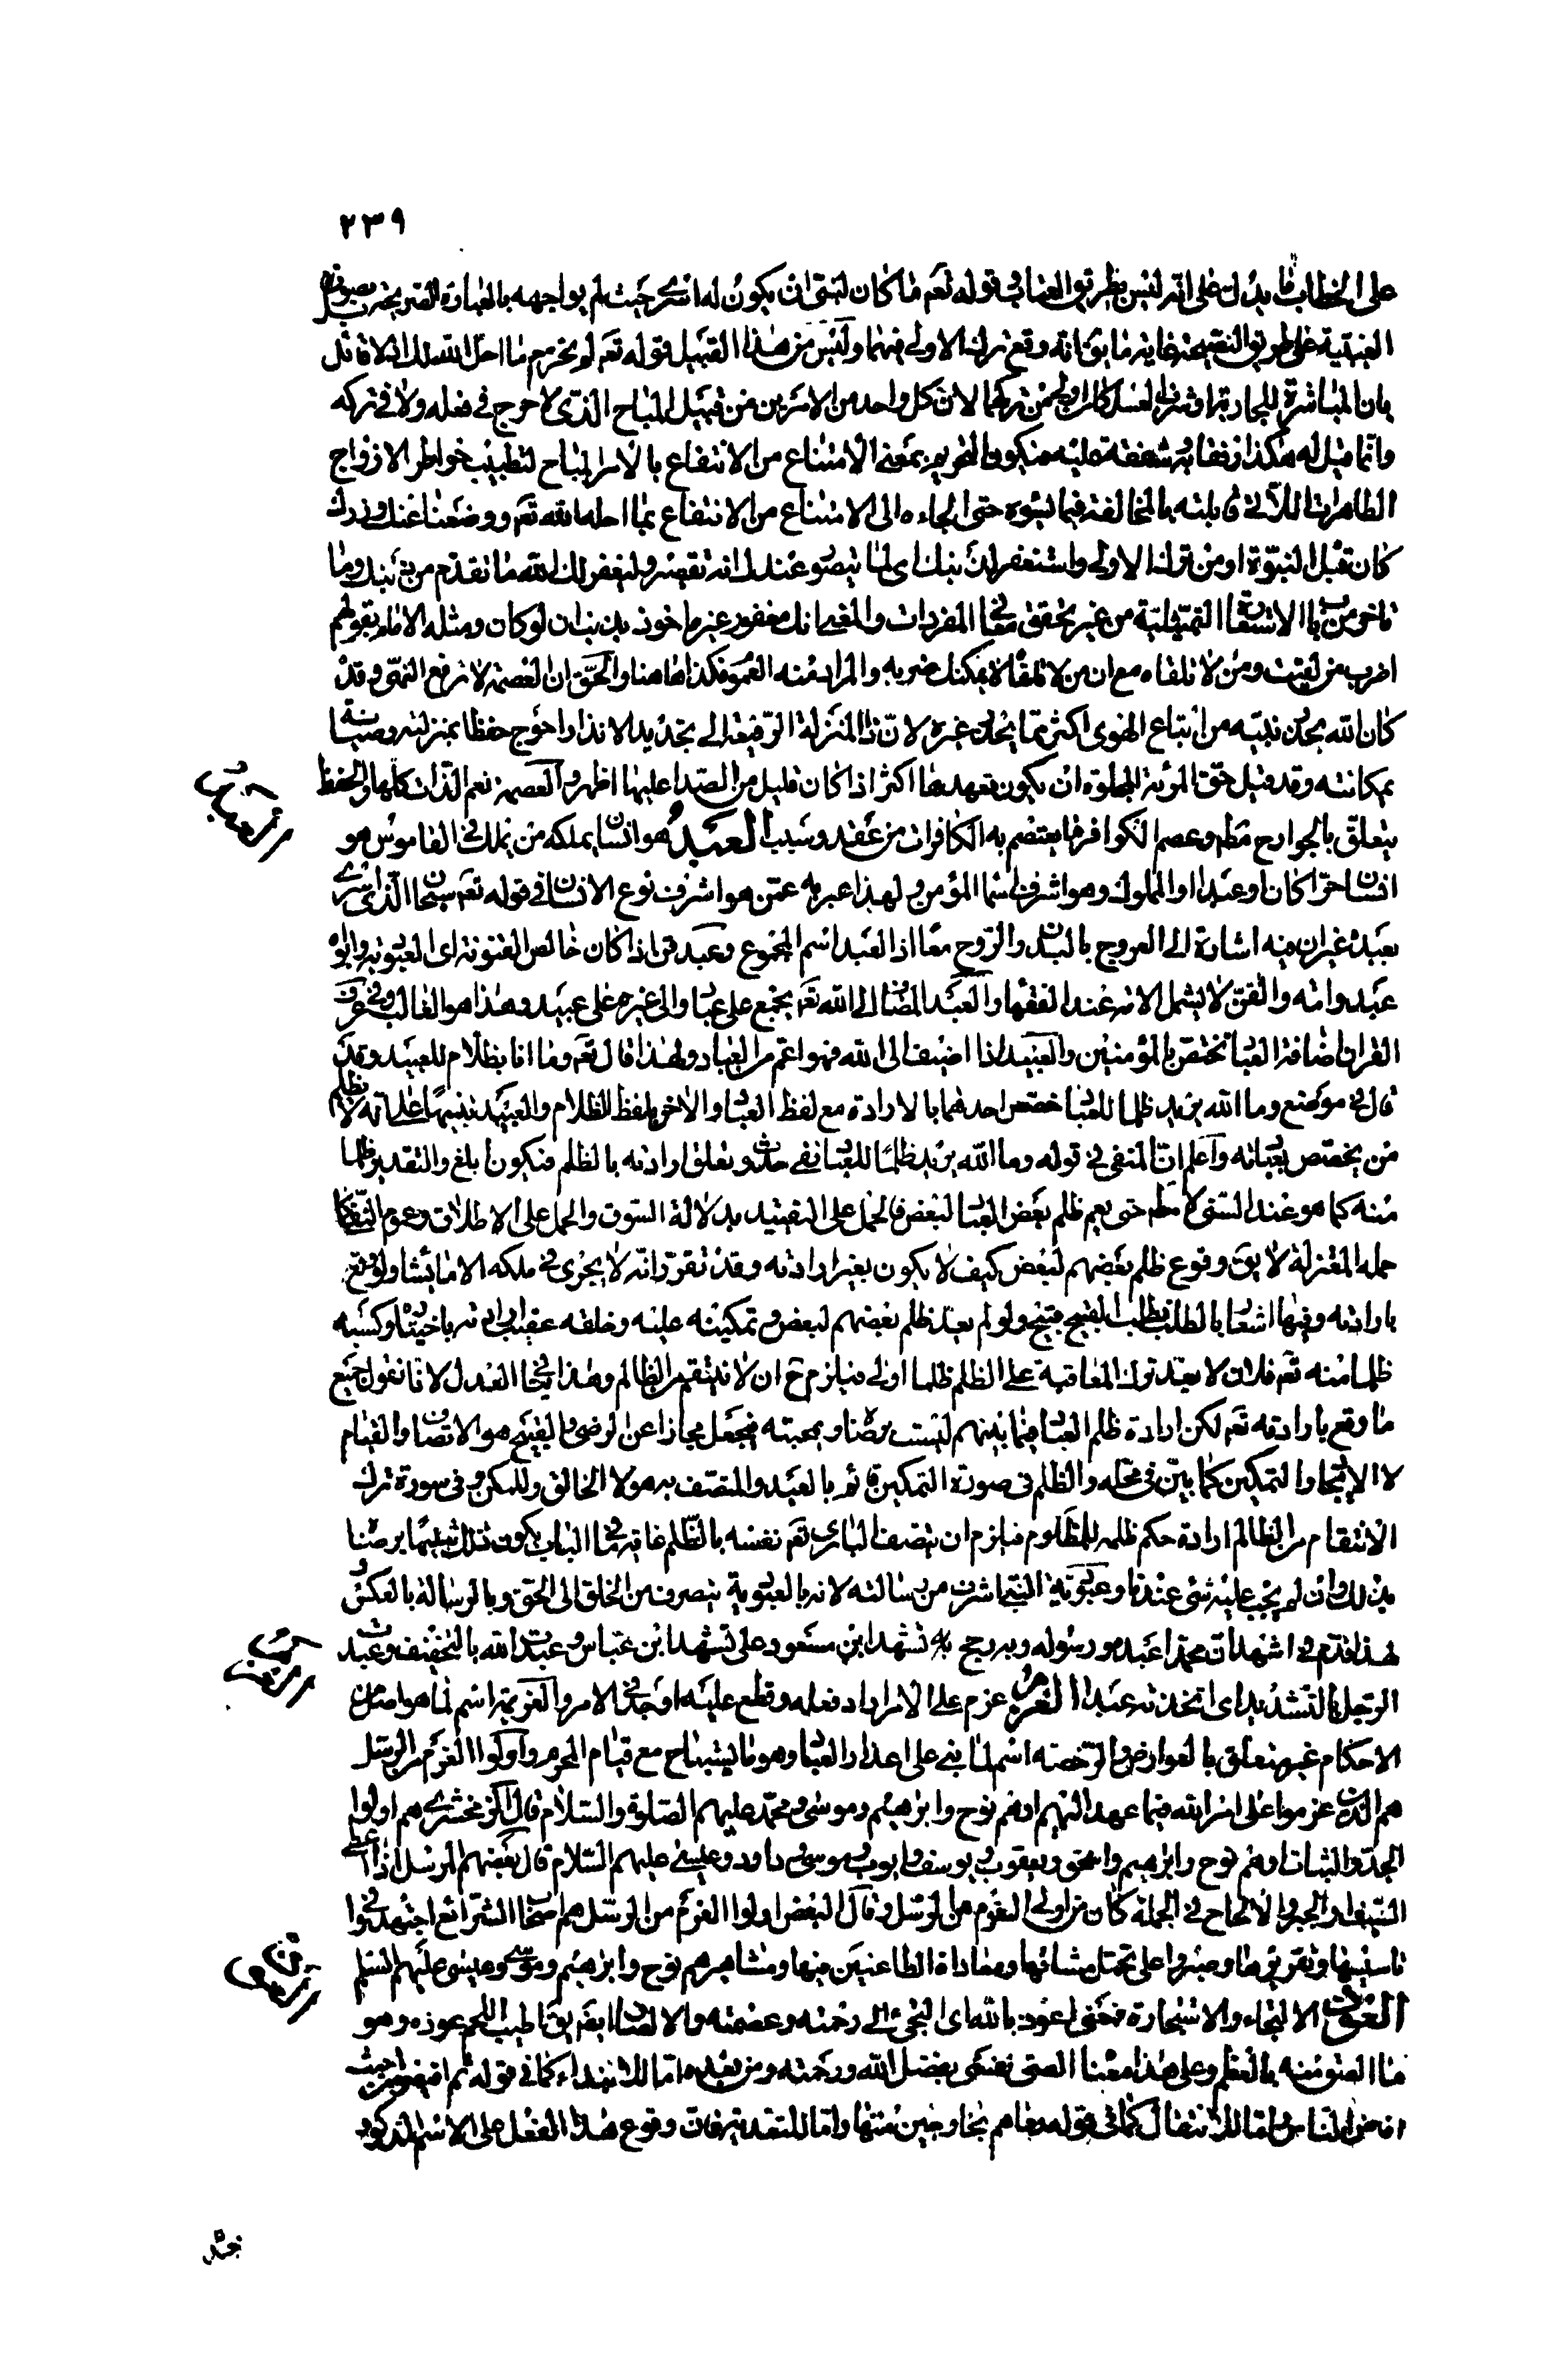 ٢٣٩
على الخطاب ما يدل على انه ليس بطريق العتاب في قوله تعم ما كان لنبي ان يكون له اسرى حيث لم يواجهه بالعبارة الصريحة بل بصورة
الغيبية على طريق النصيحة غاية ما يق انه وقع ترك الاولى منهما وليس من هذا القبيل قوله تعم لم يحرم ما احل الله لك لانه لا قائل
بان المباشرة للجارية او شرب العسل كان اولى من تركهما لان كل واحد من الامرين من قبيل المباح الذي لا حرج في فعله ولا في تركه
وانما قيل له هكذا رفقا به وشفقة عليه فيكون التحريم بمعنى الامتناع من الانتفاع بالامر المباح لتطييب خواطر الازواج
الطاهرات اللاتي قابلنه بالمخالفة فيما يسوءه حتى الجاءه الى الامتناع من الانتفاع بما احله الله تعم ووضعنا عنك وزرك
كان قبل النبوة او من ترك الاولى واستغفر لذنبك اي لما يتصور عندك انه تقصير وليغفر لك الله ما تقدم من ذنبك وما
تاخر من باب الاستعارة التمثيلية من غير تحقق معاني المفردات والمعنى انك مغفور غير ماخوذ بذنب ان لو كان ومثله الامام بقولهم
اضرب من لقيت ومن لا تلقاه مع ان من لا تلقاه لا يمكنك ضربه والمراد منه العموم فكذا هاهنا والحق ان العصمة لا ترفع النهي وقد
كان الله يحذر نبيه من اتباع الهوى اكثر مما يحذر غيره لان ذا المنزلة الرفيعة الى تجديد الانذار احوج حفظا بمنزلته وصيانة
بمكانته وقد قيل حق المرئة المجلوة ان يكون تعهدها اكثر اذ كان قليل من الصدا عليها اظهر والعصمة تعم الذات كلها والحفظ
يتعلق بالجوارح مطم وعصم الكوافر ما يعتصم به الكافرات من عقد وسبب العبد هو انسان يملكه من يملك في القاموس هو
انسان حرا كان او عبدا او المملوك وهو اشرف اسماء المؤمن ولهذا عبر به عمن هو اشرف نوع الانسان في قوله تعم سبحان الذي اسرى
بعبده غير ان فيه اشارة الى العروج بالبدن والروح معا اذ العبد اسم المجموع وعبد قن اذا كان خالص القنونة اي العبودية وابوه
عبد وامه والقن لا يشمل الامة عند الفقهاء والعبد المضاف الى الله تعم يجمع على عباد والى غيره على عبيد وهذا هو الغالب وفي عرف
القران اضافة العباد تختص بالمؤمنين والعبيد اذا اضيف الى الله فهو اعم من العباد ولهذا قال تعم وما انا بظلام للعبيد وقد
قال في موضع وما الله يريد ظلما للعباد خصص احدهما بالارادة مع لفظ العباد والاخر بلفظ الظلام والعبيد تنبيها على انه لا يظلم
من يختص بعبادته واعلم ان المنفي في قوله وما الله يريد ظلما للعباد نفي حدوث وتعلق ارادته بالظلم فيكون ابلغ والتقدير ظلما
منه كما هو عند السني لا مطم حتى يعم ظلم بعض العباد لبعض فالحمل على التقييد بدلالة السوق والحمل على الاطلاق وعموم النفي كما
حمله المعتزلة لا يق وقوع ظلم بعضهم لبعض كيف لا يكون بغير ارادته وقد تقرر انه لا يجري في ملكه الا ما يشاء ولو وقع
بارادته وفيها اشعار بالطلب وطلب القبيح قبيح ولو لم يعد ظلم بعضهم لبعض وتمكينه عليه وخلقه عقيب ارادته باختياره وكسبه
ظلما منه تعم فلان لا يعد ترك المعاقبة على الظلم ظلما اولى فيلزم ح ان لا ينتقم من الظالم وهذا ينافي العدل لانا نقول جميع
ما وقع بارادته تعم لكن ارادة ظلم العباد فيما بينهم ليست برضاه ومحبته فيجعل مجازا عن الرضى والقبيح هو الاتصاف والقيام
لا الايجاد والتمكين كما بين في محله والظلم في صورة التمكين قائم بالعبد والمتصف به هو لا الخالق والممكن وفي صورة ترك
الانتقام من الظالم ارادة حكم ظلمه للمظلوم فيلزم ان يتصف الباري تعم نفسه بالظلم غاية ما في الباب يكون ذلك تنبيها برضا
بذلك وان لم يجب عليه شئ عندنا وعبودية النبي اشرف من رسالته لانه بالعبودية ينصرف من الخلق الى الحق وبالرسالة بالعكس و
لهذا قدم في اشهد ان محمدا عبده ورسوله وبه رجح تشهد ابن مسعود على تشهد ابن عباس وعبدت الله بالتخفيف وعبدت
الرجل بالتشديد اي اتخذته عبدا العزم عزم على الامر اراد فعله وقطع عليه او جد في الامر والعزيمة اسم لما هو اصل من
الاحكام غير متعلق بالعوارض والرخصة اسم لما بني على اعذار العباد وهو ما يستباح مع قيام المحرم واولوا العزم من الرسل
هم الذين عزموا على امر الله فيما عهد اليهم او هم نوح وابراهيم وموسى ومحمد عليهم الصلوة والسلام قال الزمخشري هم اولوا
الجد والثبات او هم نوح وابراهيم واسحق ويعقوب ويوسف وايوب وموسى وداود وعيسى عليهم السلام قال بعضهم الرسل اذا اعطي
السيف والجبر والالحاح في الجملة كان من اولى العزم من الرسل وقال البعض اولوا العزم من الرسل هم اصحاب الشرائع اجتهدوا في
تاسيسها وتقريرها وصبروا على تحمل مشاقها ومعاداة الطاعنين فيها ومشاهيرهم نوح وابراهيم وموسى وعيسى عليهم السلم
العوذ الالتجاء والاستجارة فمعنى اعوذ بالله اي التجئ الى رحمته وعصمته والالصاق ايضا يق اطيب اللحم عوذه وهو
ما التصق منه بالعظم وعلى هذا معناه الصق نفسي بفضل الله ورحمته ومن بعده اما للابتداء كما في قوله ثم افيضوا من حيث
افاض الناس واما للانتقال كما في قوله وما هم بخارجين منها واما للتعدية فان وقوع هذا الفعل على الاسم المذكور